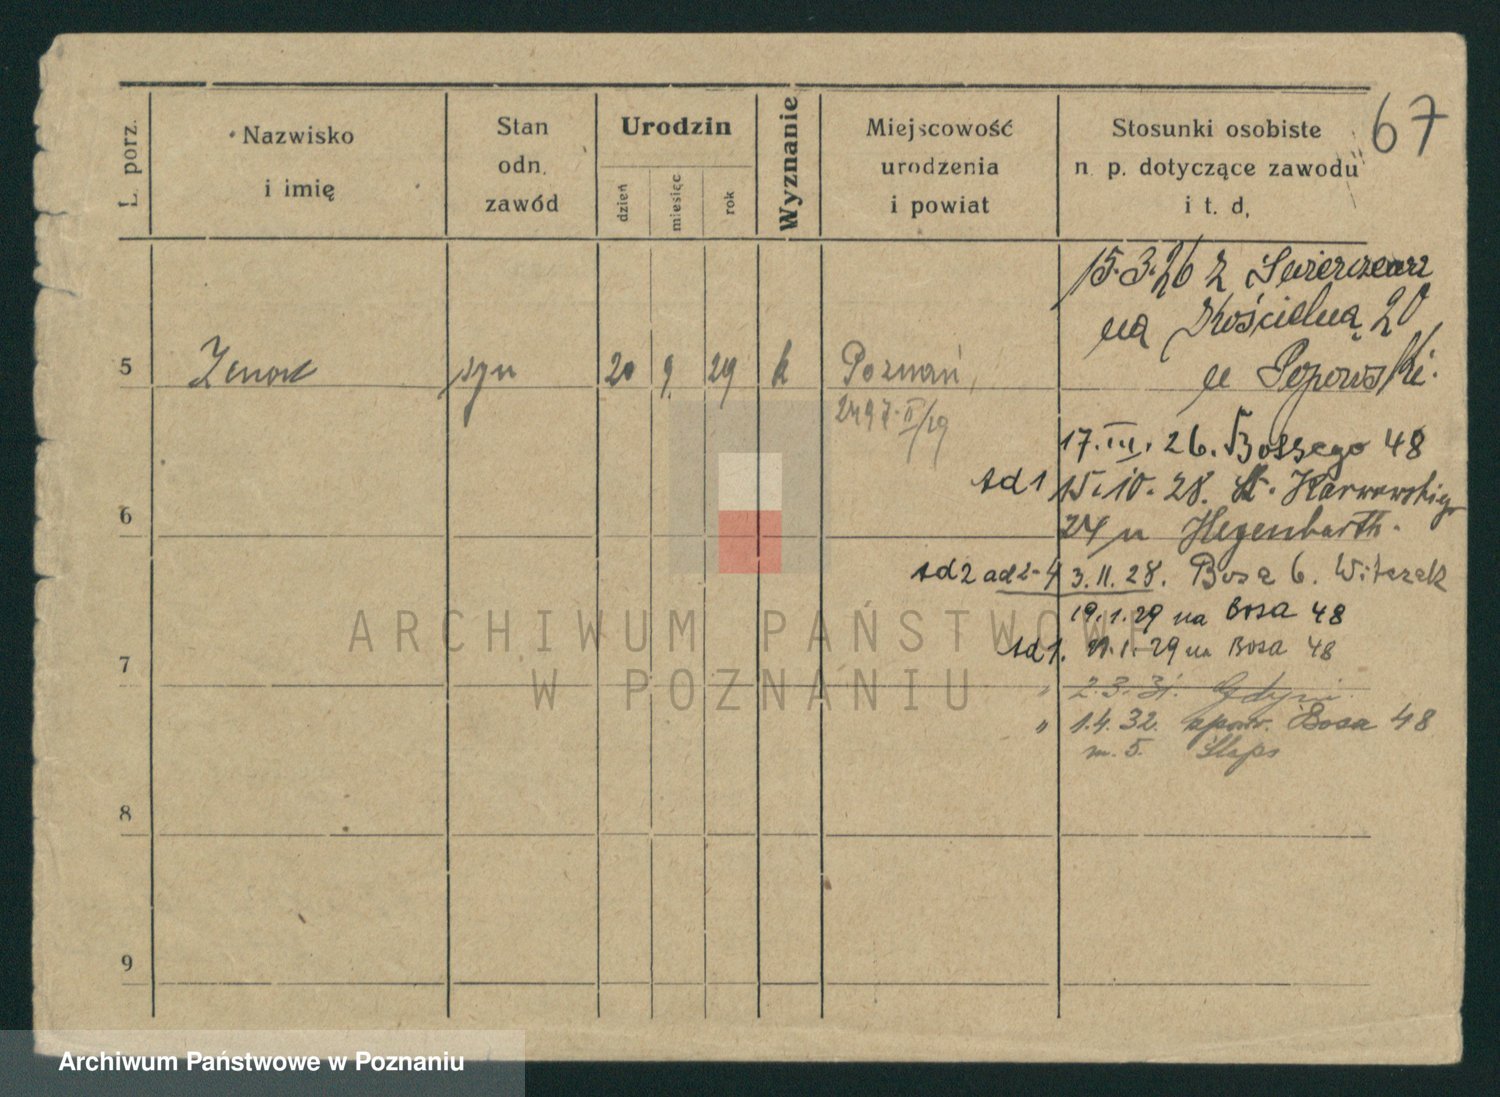 67
L. porz.
Nazwisko
i imię
Stan
odn.
zawód
Urodzin
dzień
miesiąc
rok
Wyznanie
Miejscowość
urodzenia
i powiat
Stosunki osobiste
n. p. dotyczące zawodu
i t. d.
15.3.26 z
na Kościelną 20
u Popowski.
5 Zenon syn 20 9. 29 k Poznań,
2497. II/29
17. III. 26. Bossego 48
ad 1 15.10.28. Karwowskiego
24 u Hegenbarth.
6
ad 2 ad 2-4 3.11.28. Bosa 6. Witczak
19.1.29 na Bosa 48
ad 1. 29 na Bosa 48
7
" 2.3.31. Gdyni.
" 1.4.32. spow. Bosa 48
m. 5.
8
9
ARCHIWUM PAŃSTWOWE
W POZNANIU
Archiwum Państwowe w Poznaniu